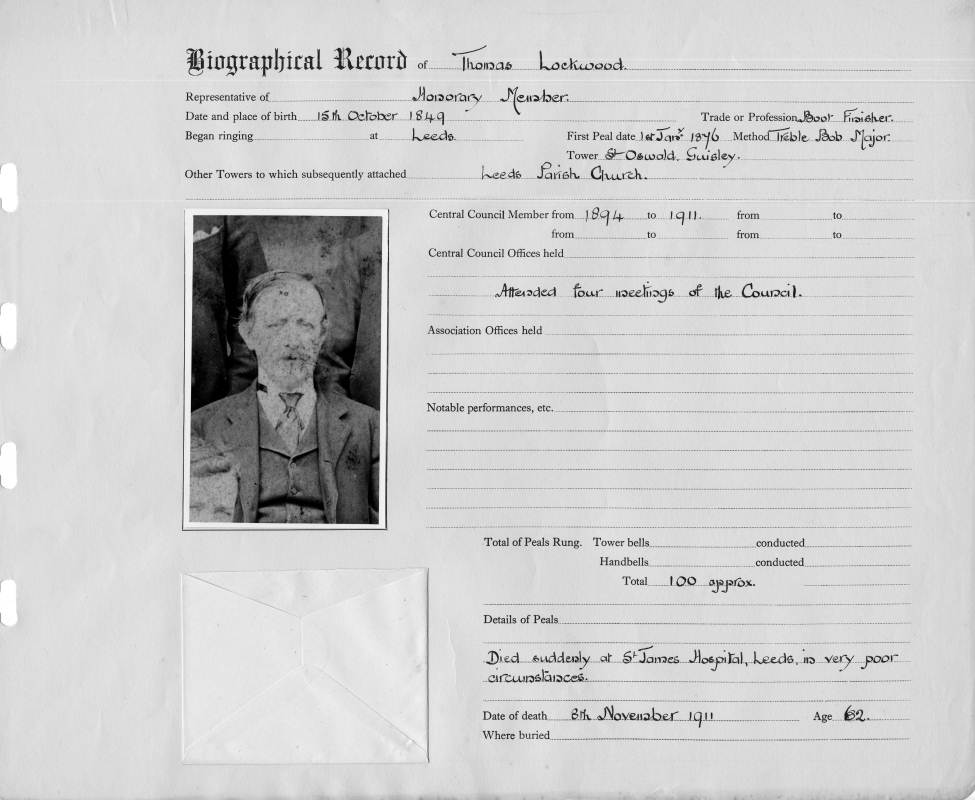 Biographical Record of Thomas Lockwood.
Representative of Honorary Member.
Date and place of birth 15th October 1849 Trade or Profession Boot Finisher.
Began ringing at Leeds. First Peal date 1st Jany. 1876 Method Treble Bob Major.
Tower St Oswald. Guisley.
Other Towers to which subsequently attached Leeds Parish Church.
Central Council Member from 1894 to 1911. from to
from to from to
Central Council Offices held
Attended four meetings of the Council.
Association Offices held
Notable performances, etc.
Total of Peals Rung. Tower bells conducted
Handbells conducted
Total 100 approx.
Details of Peals
Died suddenly at St James Hospital, Leeds, in very poor
circumstances.
Date of death 8th November 1911 Age 62.
Where buried